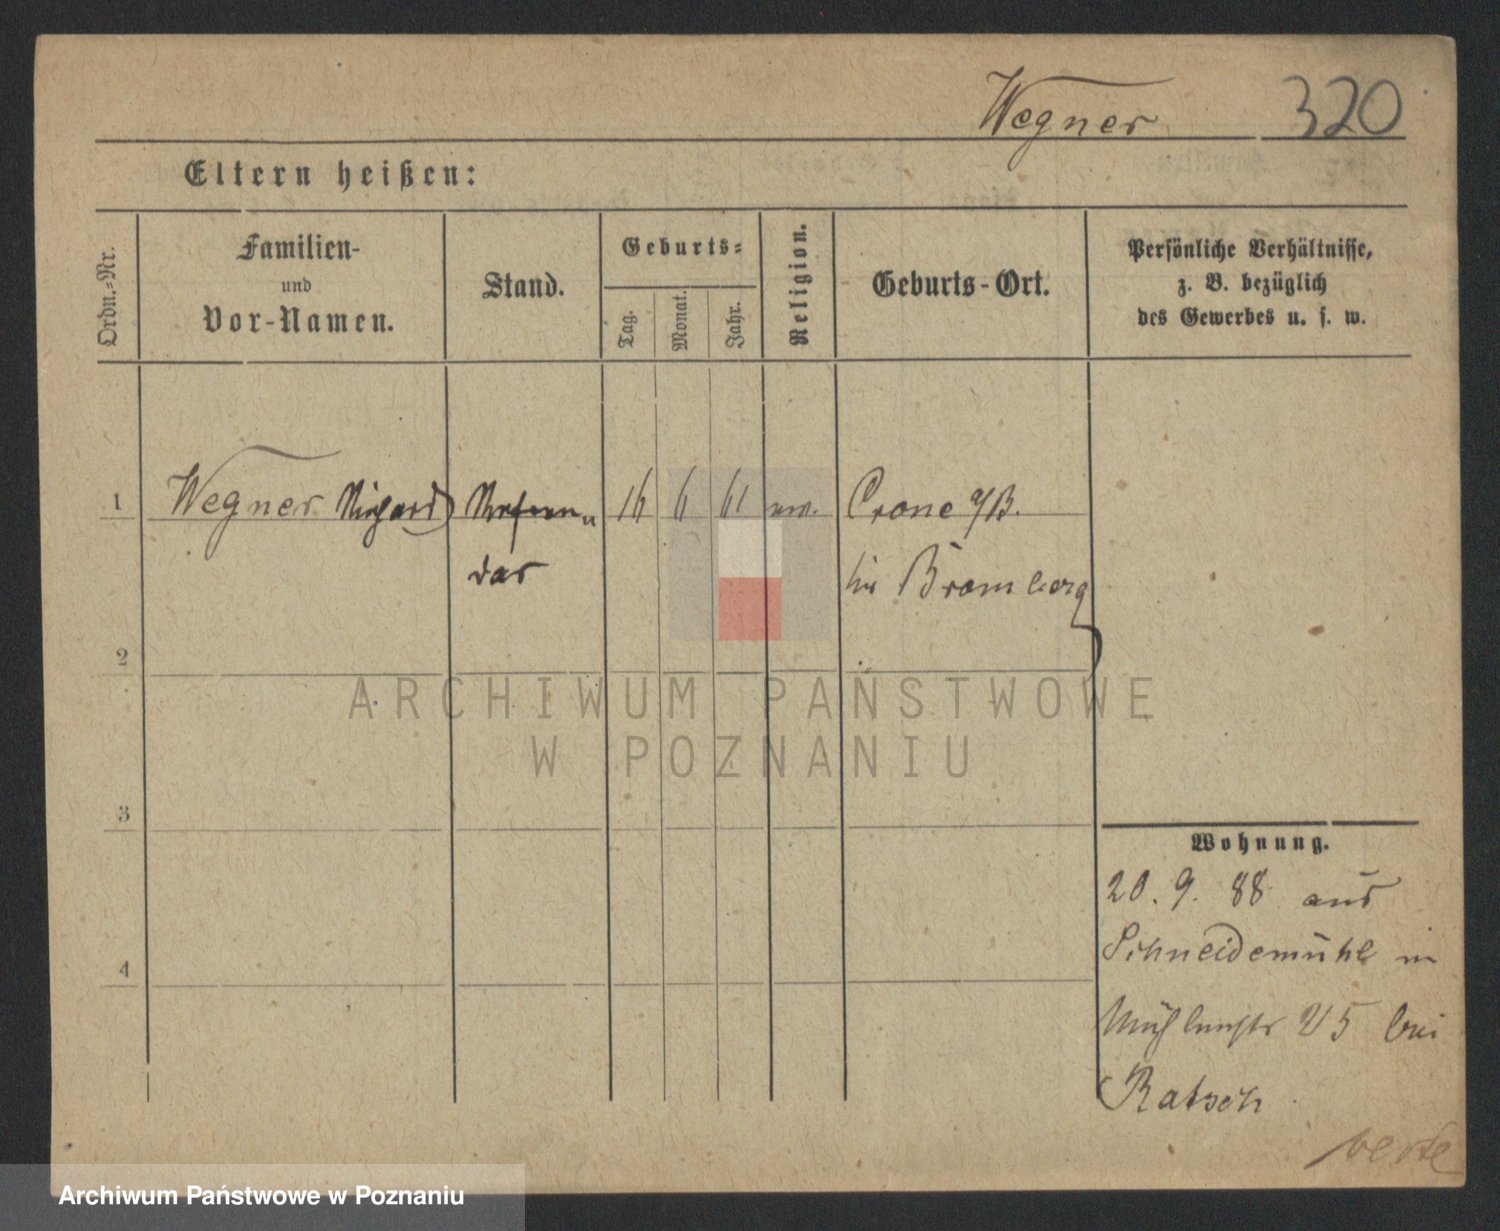 Wegner 320
Eltern heißen:
Ordn.-Nr.
Familien-
und
Vor-Namen.
Stand.
Geburts-
Tag.
Monat.
Jahr.
Religion.
Geburts-Ort.
Persönliche Verhältnisse,
z. B. bezüglich
des Gewerbes u. s. w.
1 Wegner Richard Referen- 16 6 61 ev. Crone a/B.
dar Bromberg
2
ARCHIWUM PAŃSTWOWE
W POZNANIU
3
Wohnung.
20. 9. 88 aus
Schneidemühl in
4
Mühlenstr 25 bei
Ratsch
verte
Archiwum Państwowe w Poznaniu